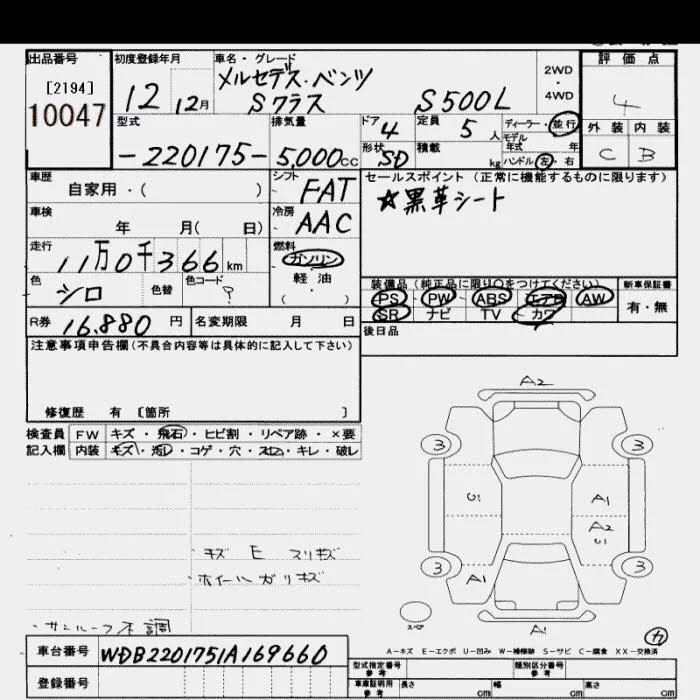 出品番号 初度登録年月 車名・グレード 評価点
[2194] メルセデス・ベンツ 2WD
10047 12 12月 Sクラス S500L ・4WD 4
型式 排気量 ドア 4 定員 5人 ディーラー・並行 外装 内装
-220175- 5,000cc 形状 SD 積載 kg モデル年式 年 C B
ハンドル 左・右
車歴 自家用・( ) シフト FAT セールスポイント (正常に機能するものに限ります)
車検 年 月( 日) 冷房 AAC ☆黒革シート
走行 11万0千366km 燃料 ガソリン
軽油
・( )
色 シロ 色替 色コード ? 装備品 (純正品に限り○をつけてください) 新車保証書
PS PW ABS エアB AW 有・無
SR ナビ TV カワ
R券 16,880円 名変期限 月 日 後日品
注意事項申告欄(不具合内容等は具体的に記入して下さい)
修復歴 有 〔箇所 〕
検査員 FW キズ・飛石・ヒビ割・リペア跡・×要
記入欄 内装 キズ・汚レ・コゲ・穴・スレ・キレ・破レ
A2
3 3
U1 A1
A2
U1
3 3
A1
A1
スペア
キズ E スリキズ
ホイールガリキズ
・サンルーフ不調
カ
A-キズ E-エクボ U-凹み W-補修跡 S-サビ C-腐食 XX-交換済
車台番号 WDB2201751A169660 型式指定番号 参考 類別区分番号 参考
登録番号 車庫証明用 参考 長さ cm 幅 cm 高さ cm